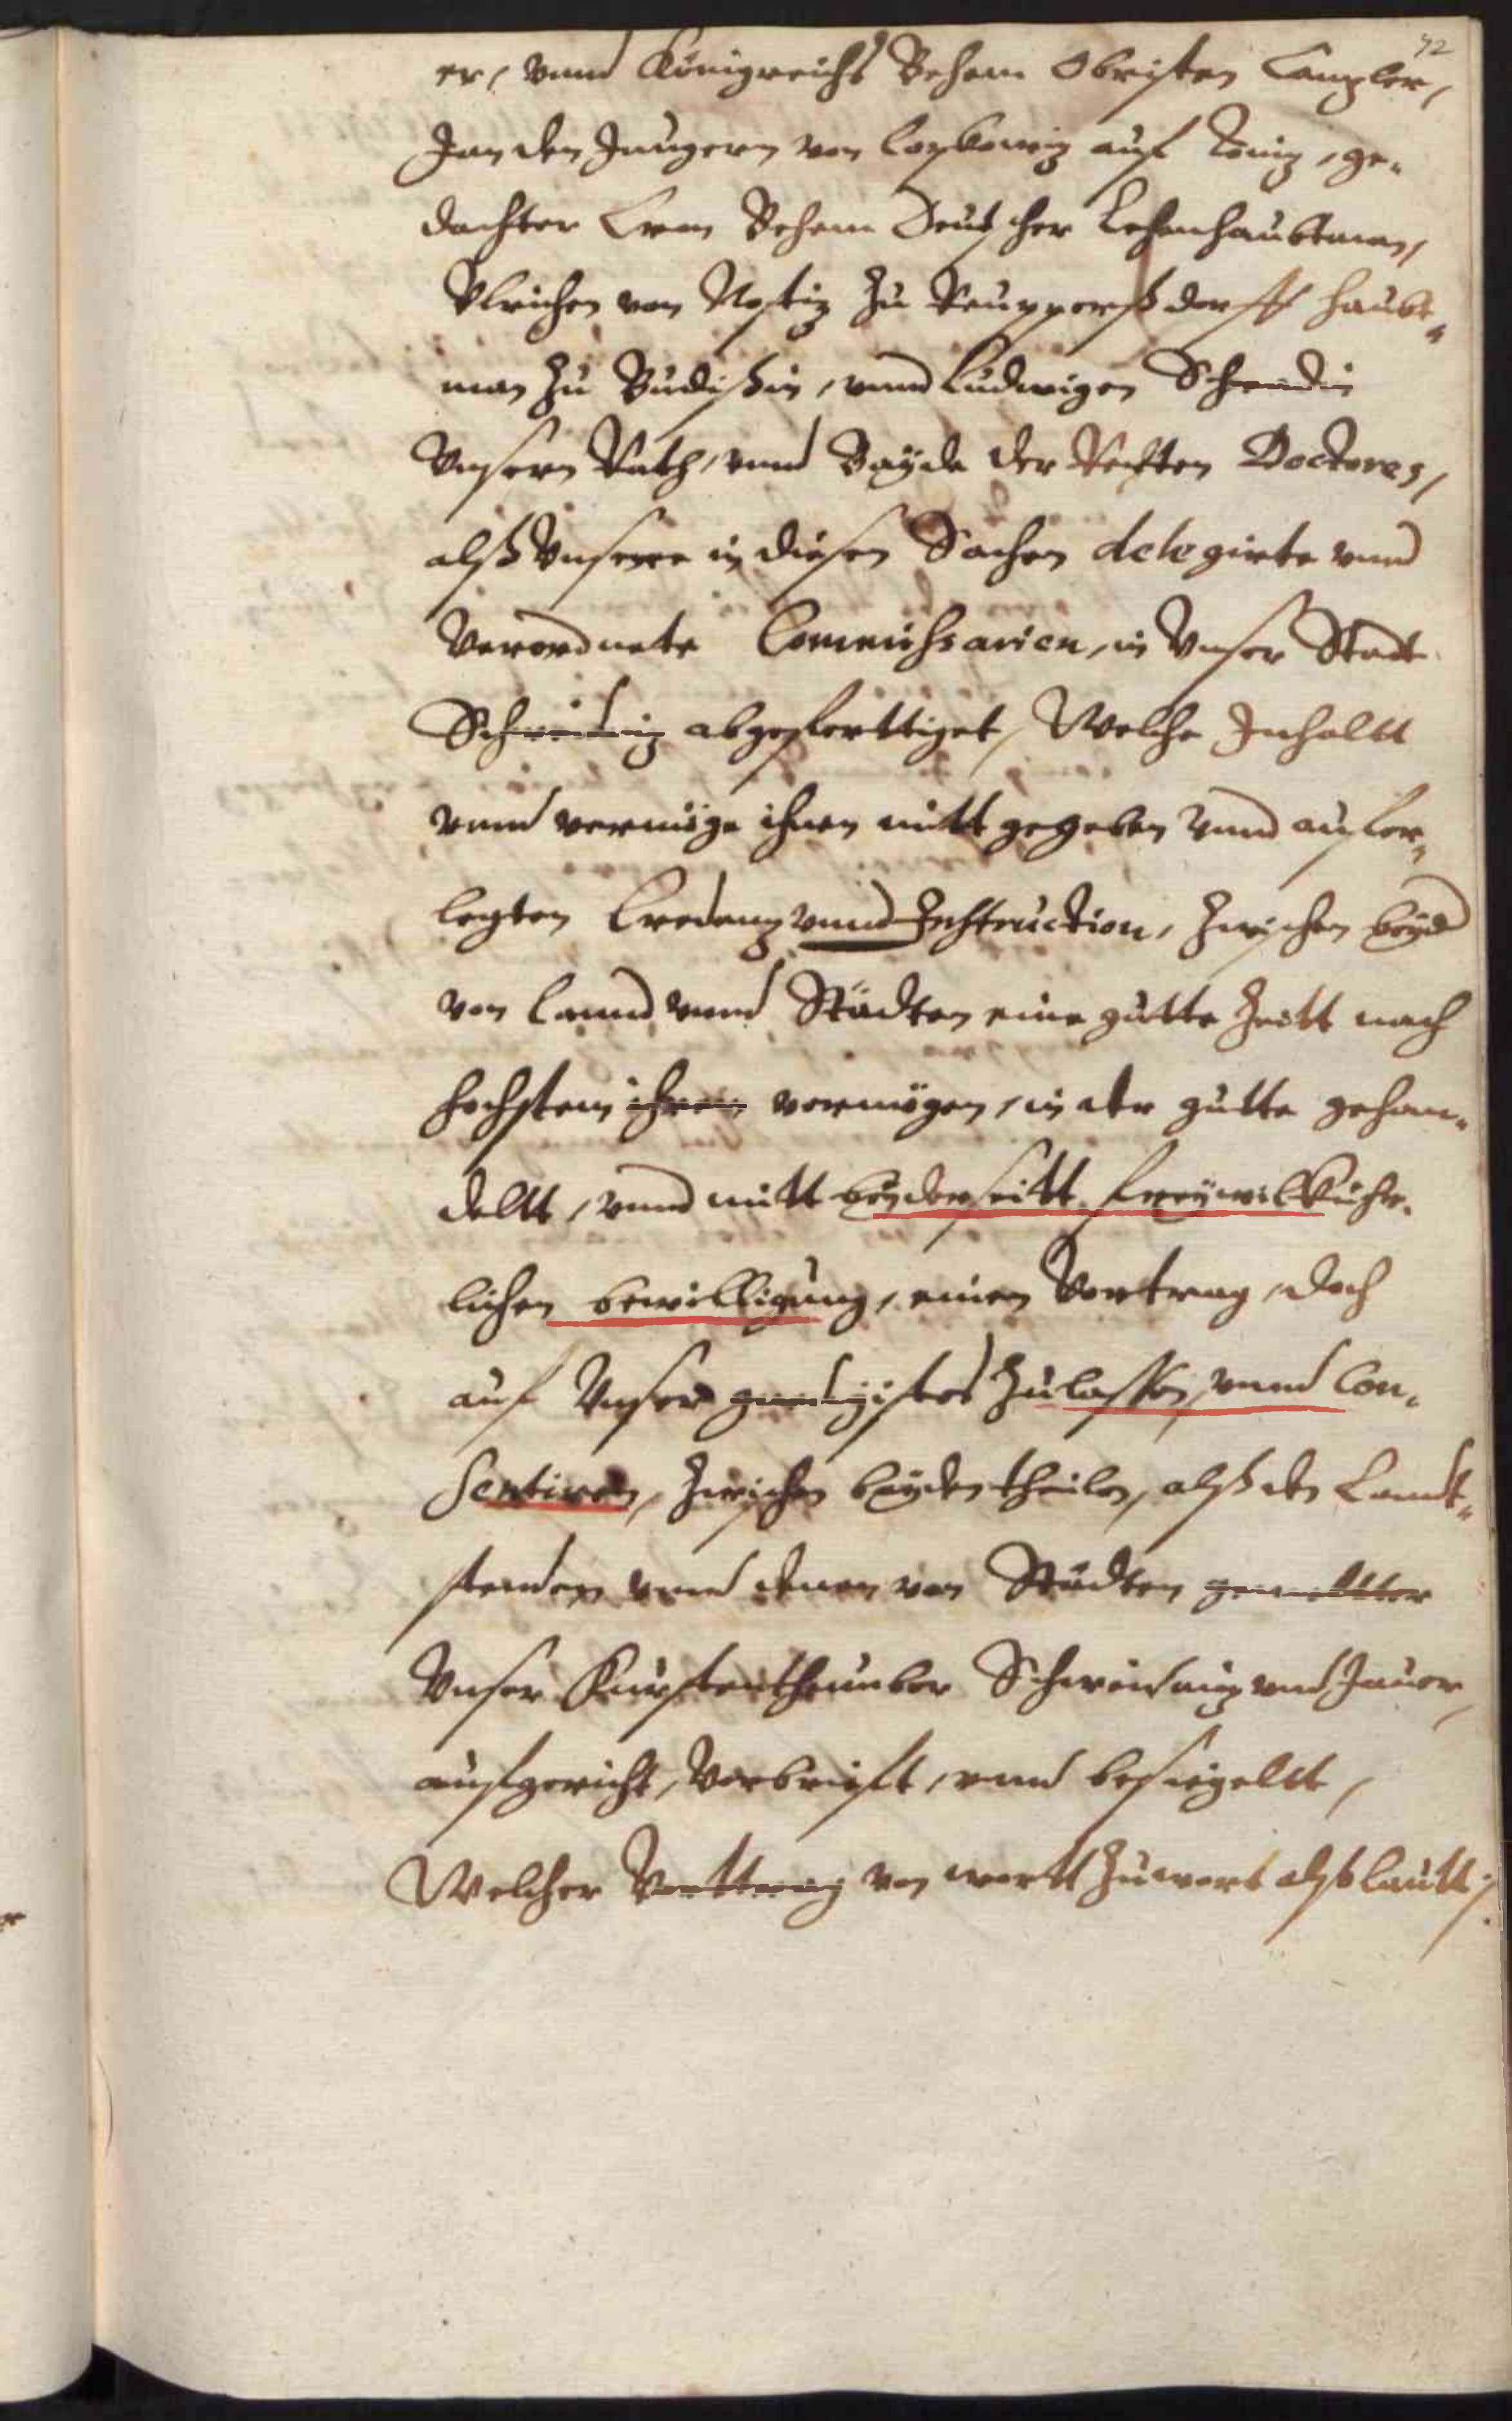 42
er, vnnd Königreichs Behem Obristen Canzler,
Jan den Jungern von Lobkowiz auf Töniz, ge-
dachter Cron Behem Deutscher Lehenhaubtman,
Vlrichen von Nostiz zu Ruppersdorff haubt-
man zu Budißin, vnnd Ludwigen
Vnsern Rath, vnnd Bayde der Rechten Doctores,
alß Vnsere in diesen Sachen delegirte vnnd
Verordnete Commissarien, in Vnser Stadt
abgeferttiget, Welche Inhaltt
vnnd vermöge ihnen mitt gegeben vnnd aufer-
legten Credenz vnnd Instruction, zwischen beyd
von Lannd vnnd Städten eine gutte Zeitt nach
hochstem ihrem vermögen, in der gutte gehan-
deltt, vnnd mitt beyderseitt freywillkuhr-
lichen bewilligung, einen Vertrag, doch
auf Vnser gnedigistes zulassen, vnnd Con-
sentiren, zwischen beyden theilen, alß den Landt-
stenden vnnd denen von Städten gemeltter
Vnser Furstenthumber Schweidniz vnd Jauer,
aufgericht, Verbrieft, vnnd besiegeltt,
Welcher Verttrag von wortt zu wort also lautt: